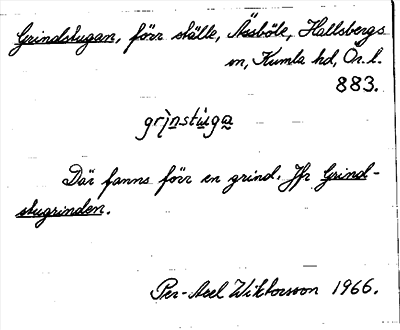 Grindstugan, förr ställe, Åssböle, Hallsbergs
sn, Kumla hd, Ör. l.
883.
gri̇̀nstu̇ga
Där fanns förr en grind. Jfr Grind-
stugrinden.
Per-Axel Wiktorsson 1966.